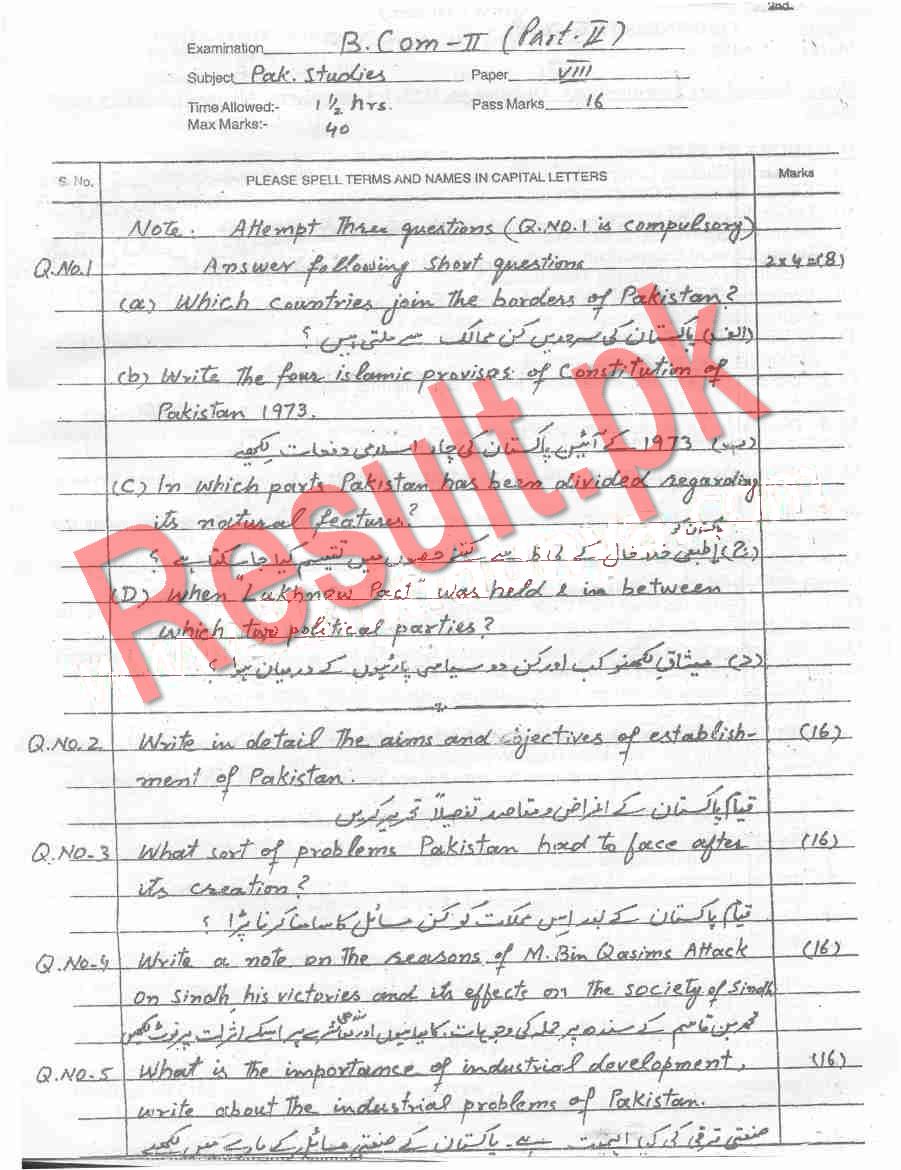 2nd.
Examination B.Com-II (Part-II)
Subject Pak. Studies Paper VIII
Time Allowed:- 1 1/2 hrs. Pass Marks 16
Max Marks:- 40
S. No. PLEASE SPELL TERMS AND NAMES IN CAPITAL LETTERS Marks
Note. Attempt Three questions (Q.NO.1 is compulsory)
Q.No.1 Answer following Short questions 2x4=(8)
(a) Which countries join the borders of Pakistan?
(الف) پاکستان کی سرحدیں کن ممالک سے ملتی ہیں ؟
(b) Write the four islamic provisos of Constitution of
Pakistan 1973.
(ب) 1973 کے آئین پاکستان کی چار اسلامی دفعات لکھیے
(C) In which parts Pakistan has been divided regarding
its natural features?
پاکستان کو
(ج) طبعی خدوخال کے لحاظ سے کتنے حصوں میں تقسیم کیا جا سکتا ہے ؟
(D) When "Lukhnow Pact" was held & in between
which two political parties?
(د) میثاق لکھنو کب اور کن دو سیاسی پارٹیوں کے درمیان ہوا ؟
Q.No.2 Write in detail The aims and objectives of establish- (16)
ment of Pakistan.
قیام پاکستان کے اغراض و مقاصد تفصیلاً تحریر کریں
Q.NO-3 What sort of problems Pakistan had to face after (16)
its creation?
قیام پاکستان کے بعد اس مملکت کو کن مسائل کا سامنا کرنا پڑا ؟
Q.No-4 Write a note on the reasons of M.Bin Qasims Attack (16)
on Sindh his victories and its effects on The society of Sindh
محمد بن قاسم کے سندھ پر حملہ کی وجوہات، کامیابیوں اور سندھی معاشرے پر اسکے اثرات پر نوٹ لکھیں
Q.NO-5 What is the importance of industrial development, (16)
write about The industrial problems of Pakistan.
صنعتی ترقی کی کیا اہمیت ہے۔ پاکستان کے صنعتی مسائل کے بارے میں لکھیے
Result.pk